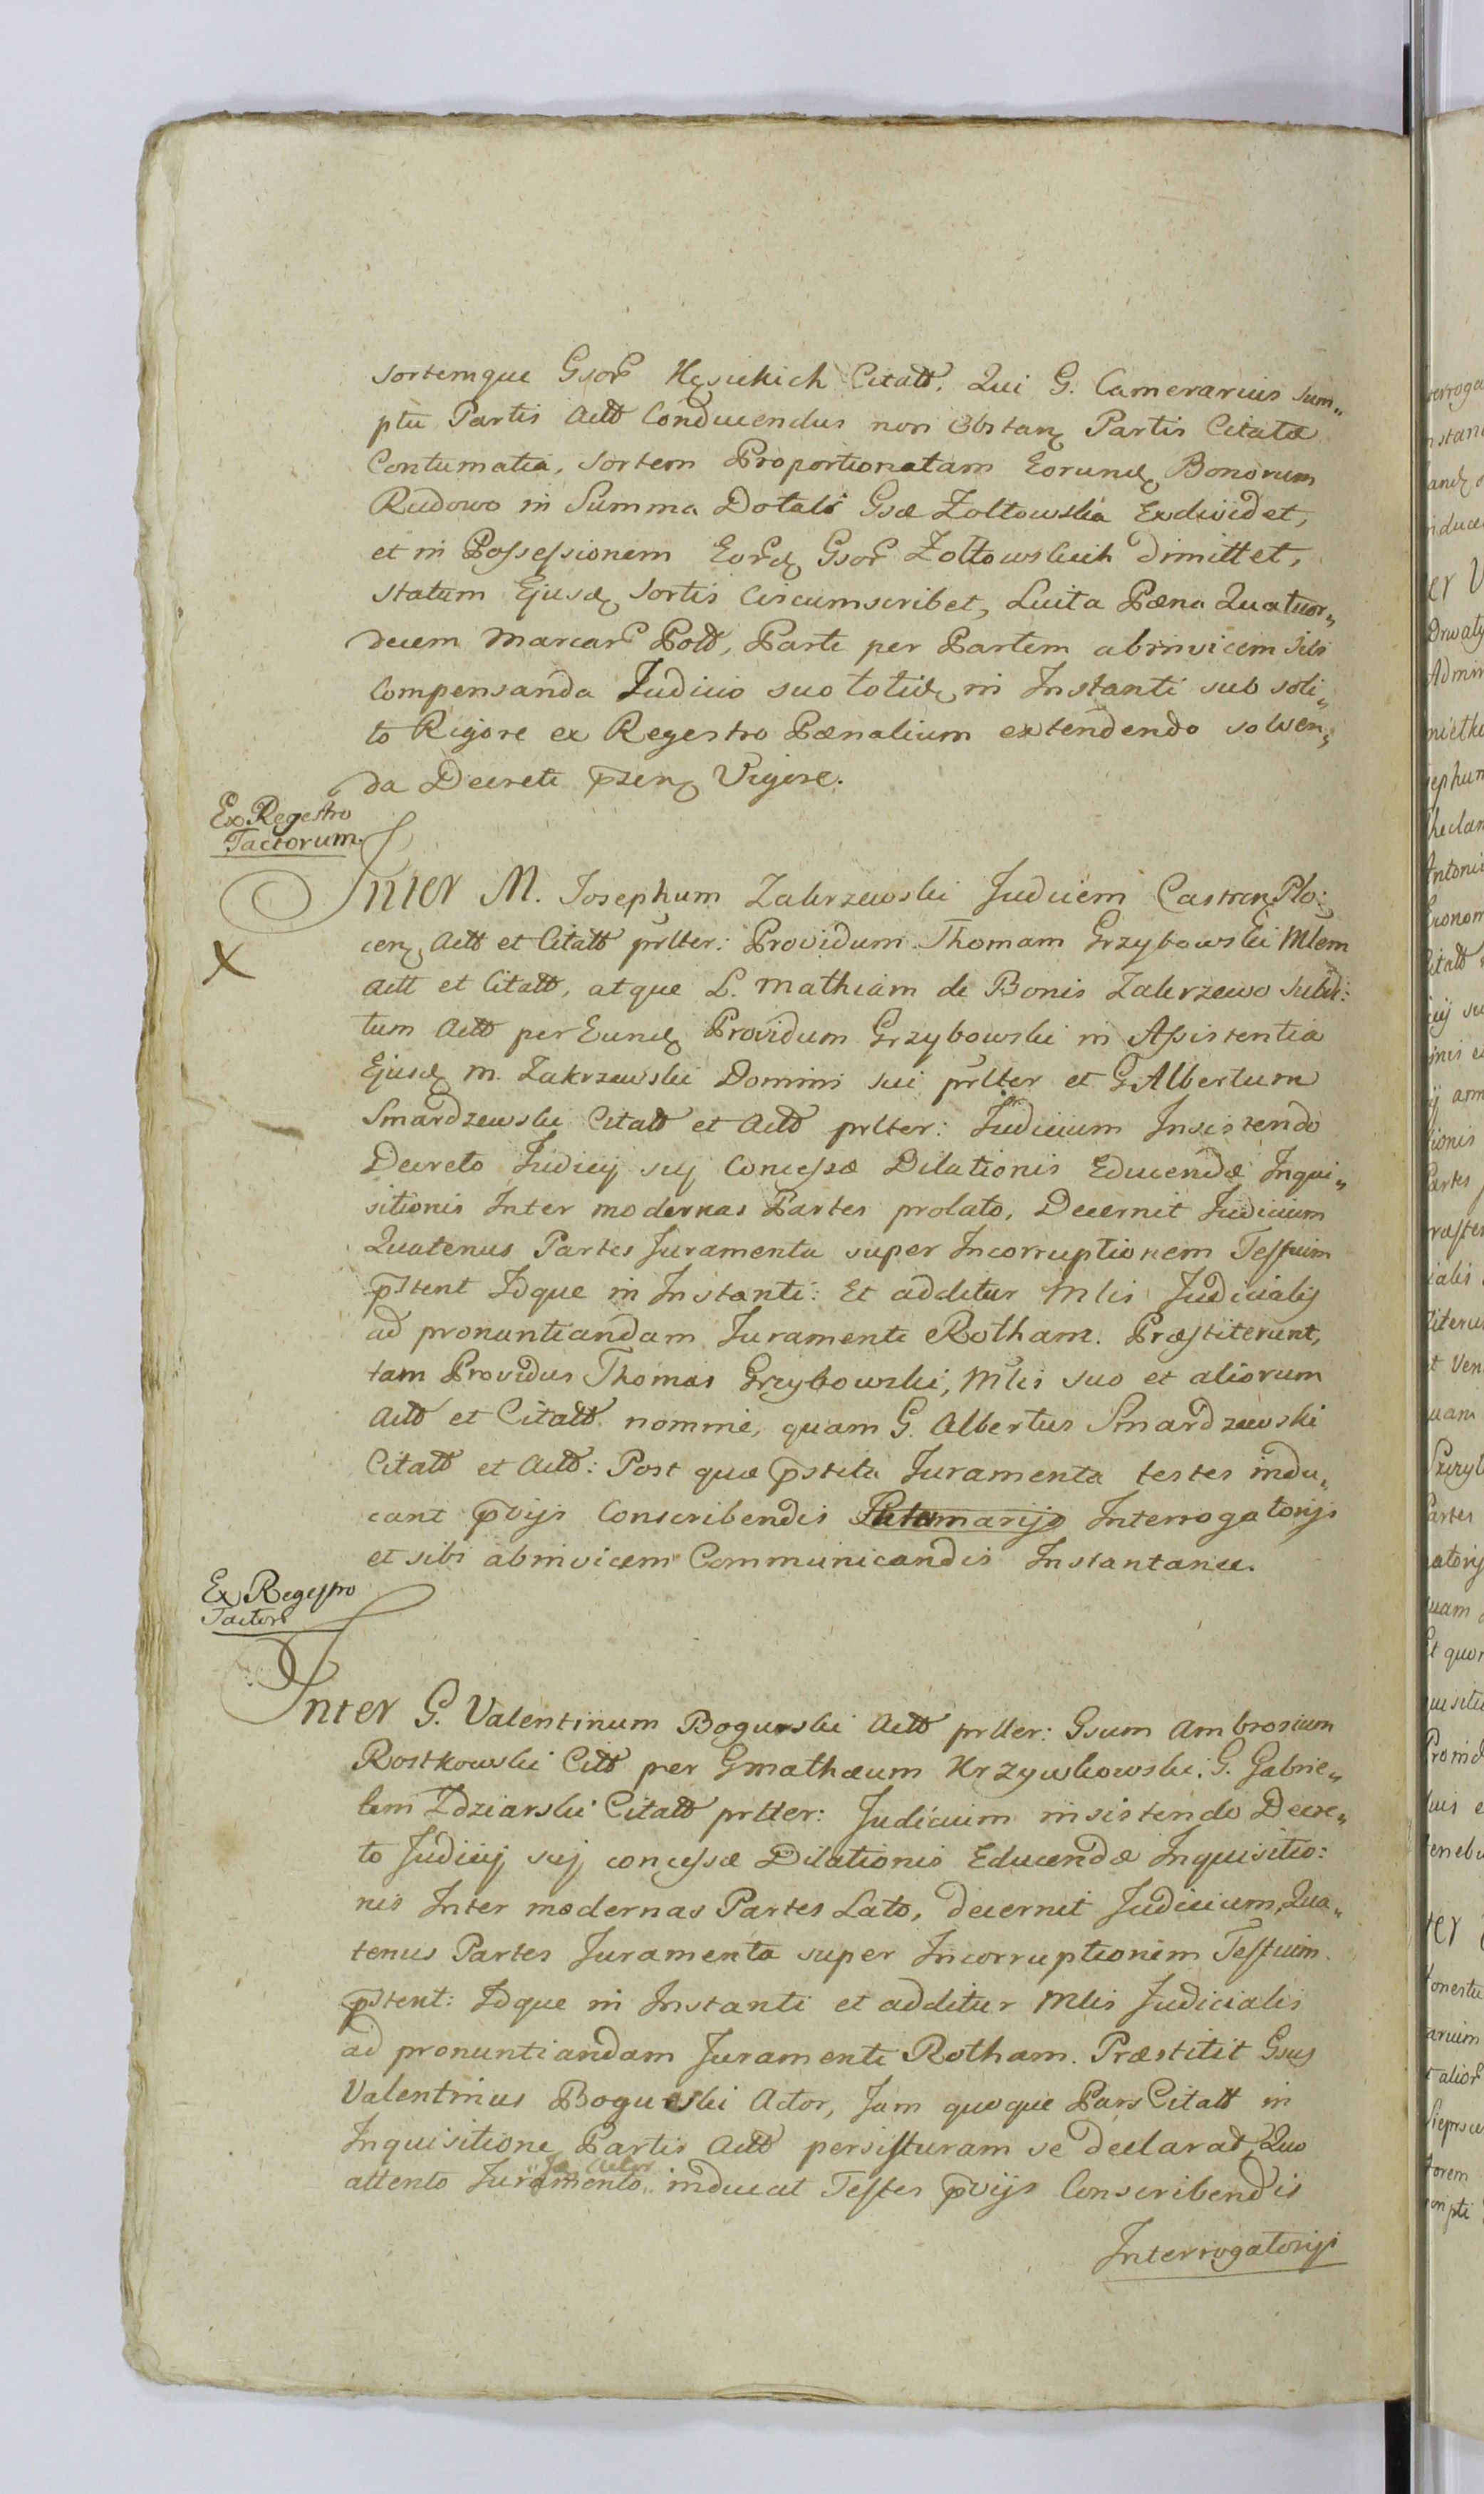 sortemque Gsor Hęsickich Citatt. Qui G. Camerarius sum„
ptu Partis Actt Conducendus non Obstanȝ Partis Citatæ
Contumatia, sortem Proportionatam Eorundȝ Bonorum
Rudowo in Summa Dotali Gsæ Zoltowska Exdividet,
et in Possessionem Eordȝ Gsor Zoltowskich dimittet,
statum Ejusdȝ sortis Circumscribet, Luita Pæna Quatuor„
decem Marcar Poll, Parte per Partem abinvicem sibi
Compensanda Judicio suo totidȝ in Instanti sub soli„
to Rigore ex Regestro Pænalium extendendo solven„
da Decreti pzenȝ Vigore.
Ex Regestro
Tactorum.
Inter M. Josephum Zakrzewski Judicem Castren Plo:
cenȝ Actt et Citatt prlter: Providum Thomam Grzybowski Mlem
Actt et Citatt, atque L. Mathiam de Bonis Zakrzewo Subdi:
tum Actt per Eundȝ Providum Grzybowski in Assistentia
Ejusdȝ M. Zakrzewski Domini sui prlter et G Albertum
Smardzewski Citatt et Actt prlter: Judicium Insistendo
Decreto Judicij suj Concessæ Dilationis Educendæ Inqui„
sitionis Inter modernas Partes prolato, Decernit Judicium
Quatenus Partes Juramenta super Incorruptionem Testium
pstent Idque in Instanti: Et additur Mlis Judicialis
ad pronuntiandam Juramenti Rotham. Præstiterunt,
tam Providus Thomas Grzybowski, Mlis suo et aliorum
Actt et Citatt nomine, quam G. Albertus Smardzewski
Citatt et Actt: Post quæ pstita Juramenta testes indu„
cant pvijs Conscribendis Interrogatorijs
et sibi abinvicem Communicandis Instantanee.
Ex Regestro
Tactor
Inter G. Valentinum Bogurski Actt prlter: Gsum Ambrosium
Rostkowski Citt per G Mathæum Krzywkowski. G. Gabrie„
lem Zdziarski Citatt prlter: Judicium insistendo Decre„
to Judicij suj concessæ Dilationis Educendæ Inquisitio:
nis Inter modernas Partes Lato, decernit Judicium, Qua„
tenus Partes Juramenta super Incorruptionem Testium
pstent: Idque in Instanti et additur Mlis Judicialis
ad pronuntiandam Juramenti Rotham. Præstitit Gsus
Valentinus Bogurski Actor, Jam quoque Pars Citatt in
Inquisitione Partis Actt persisturam se declarat, Quo
attento Juramento inducat Testes pvijs Conscribendis
Interrogatorijs